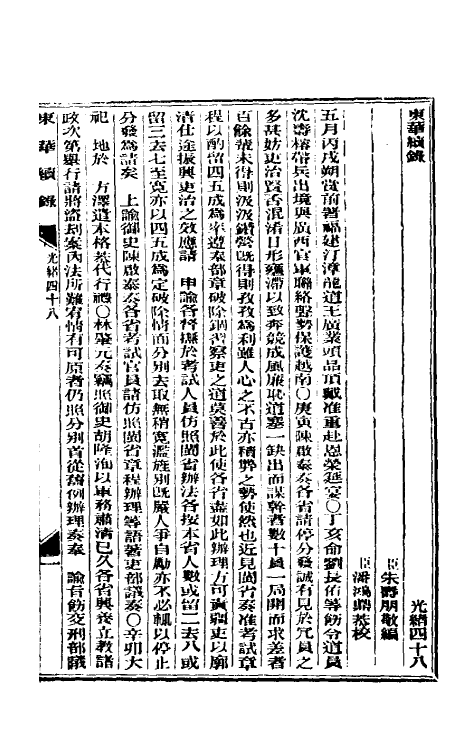 東華續錄
光緒四十八
臣朱壽朋敬編
臣潘鴻鼎恭校
五月丙戌朔賞前署福建汀漳龍道王廣業頭品頂戴准重赴恩榮筵宴〇丁亥命劉長佑等飭令道員
沈壽榕帶兵出境與廣西官軍聯絡聲勢保護越南〇庚寅陳啟泰奏各省請停分發誠有見於冗員之
多甚妨吏治賢否混淆日形壅滯以致奔競成風廉恥道塞一缺出而謀幹者數十員一局開而求差者
百餘輩未得則汲汲鑽營既得則孜孜為利雖人心之不古亦積弊之勢使然也近見閩省奏准考試章
程以酌留四五成為率遵奏部章破除錮習察吏之道莫善於此使各省盡如此辦理方可責疆吏以廓
清仕途振興吏治之效應請　申諭各督撫於考試人員仿照閩省辦法各按本省人數或留二去八或
留三去七至寬亦以四五成為定破除情面分別去取無稍寬濫旌別既嚴人爭自勵亦不必輒以停止
分發為請奏　上諭御史陳啟泰奏各省考試官員請仿照閩省章程辦理等語著吏部議奏〇辛卯大
祀　地於　方澤遣本格恭代行禮〇林肇元奏竊照御史胡隆洵以軍務肅清已久各省興養立教諸
政次第舉行請將盜劫案內法所難宥情有可原者仍照分別首從舊例辦理奏奏　諭旨飭交刑部議
東華續錄
光緒四十八